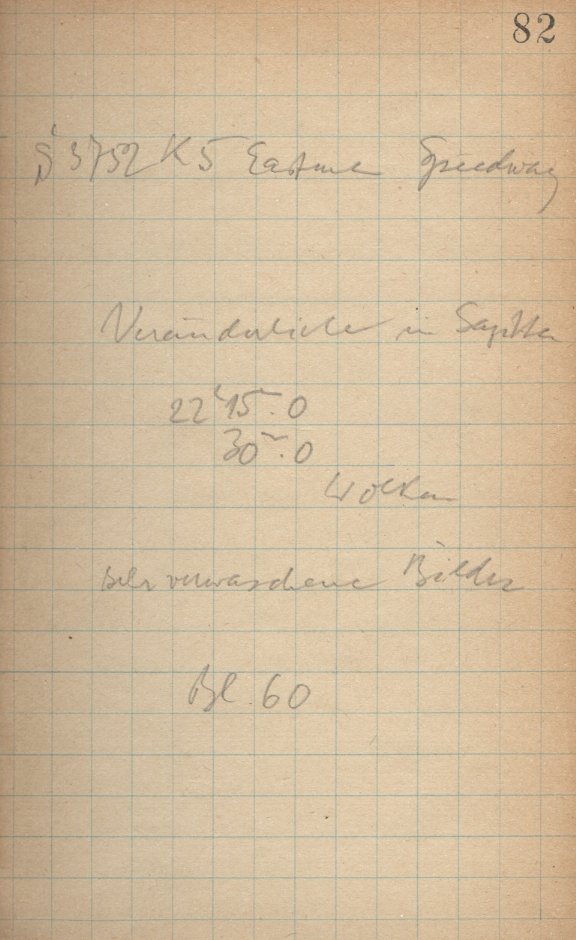 82
S 3752 K 5 Eastman Speedway
Veränderliche in Sagitta
22ʰ 15ᵐ.0
30ᵐ.0
Wolken
sehr verwaschene Bilder
Bl. 60